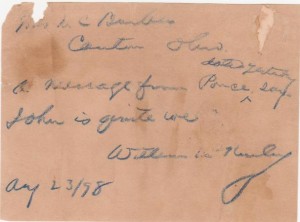 Mrs M C Barber
Canton Ohio
dated yesterday
a message from Ponce, says
John is quite well
William McKinley
Aug 23/98